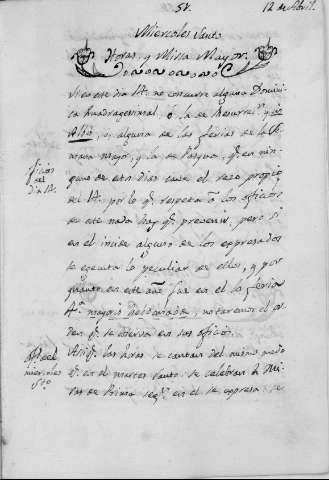 51.
12 de Abril.
Miercoles Santo
Horas, y Missa Mayor.
Si en este dia 14. no concurre alguna Dominica
Quadragesimal, ò la de Resurrecn. y
ò alguna de las ferias de la Semana
mayor, y la de Pasqua, qe. en ninguno
de estos dias cave el rezo propio
del 14. por lo qe. respeta à los oficios
de este nada hay qe. prevenir, pero si
en el incide alguno de los expresados
se egecuta lo peculiar de ellos, y por
quanto en este año fue en el la feria
4a. mayoris hebdomadæ, notaremos el orden
qe. se observa en sus oficios.
Oficios
del
dia 14.
miercoles
Sto.
Asi qe. las horas se cantan del mismo modo
qe. en el martes santo: se celebran 2 Misas
de Prima segn. en el se expresa